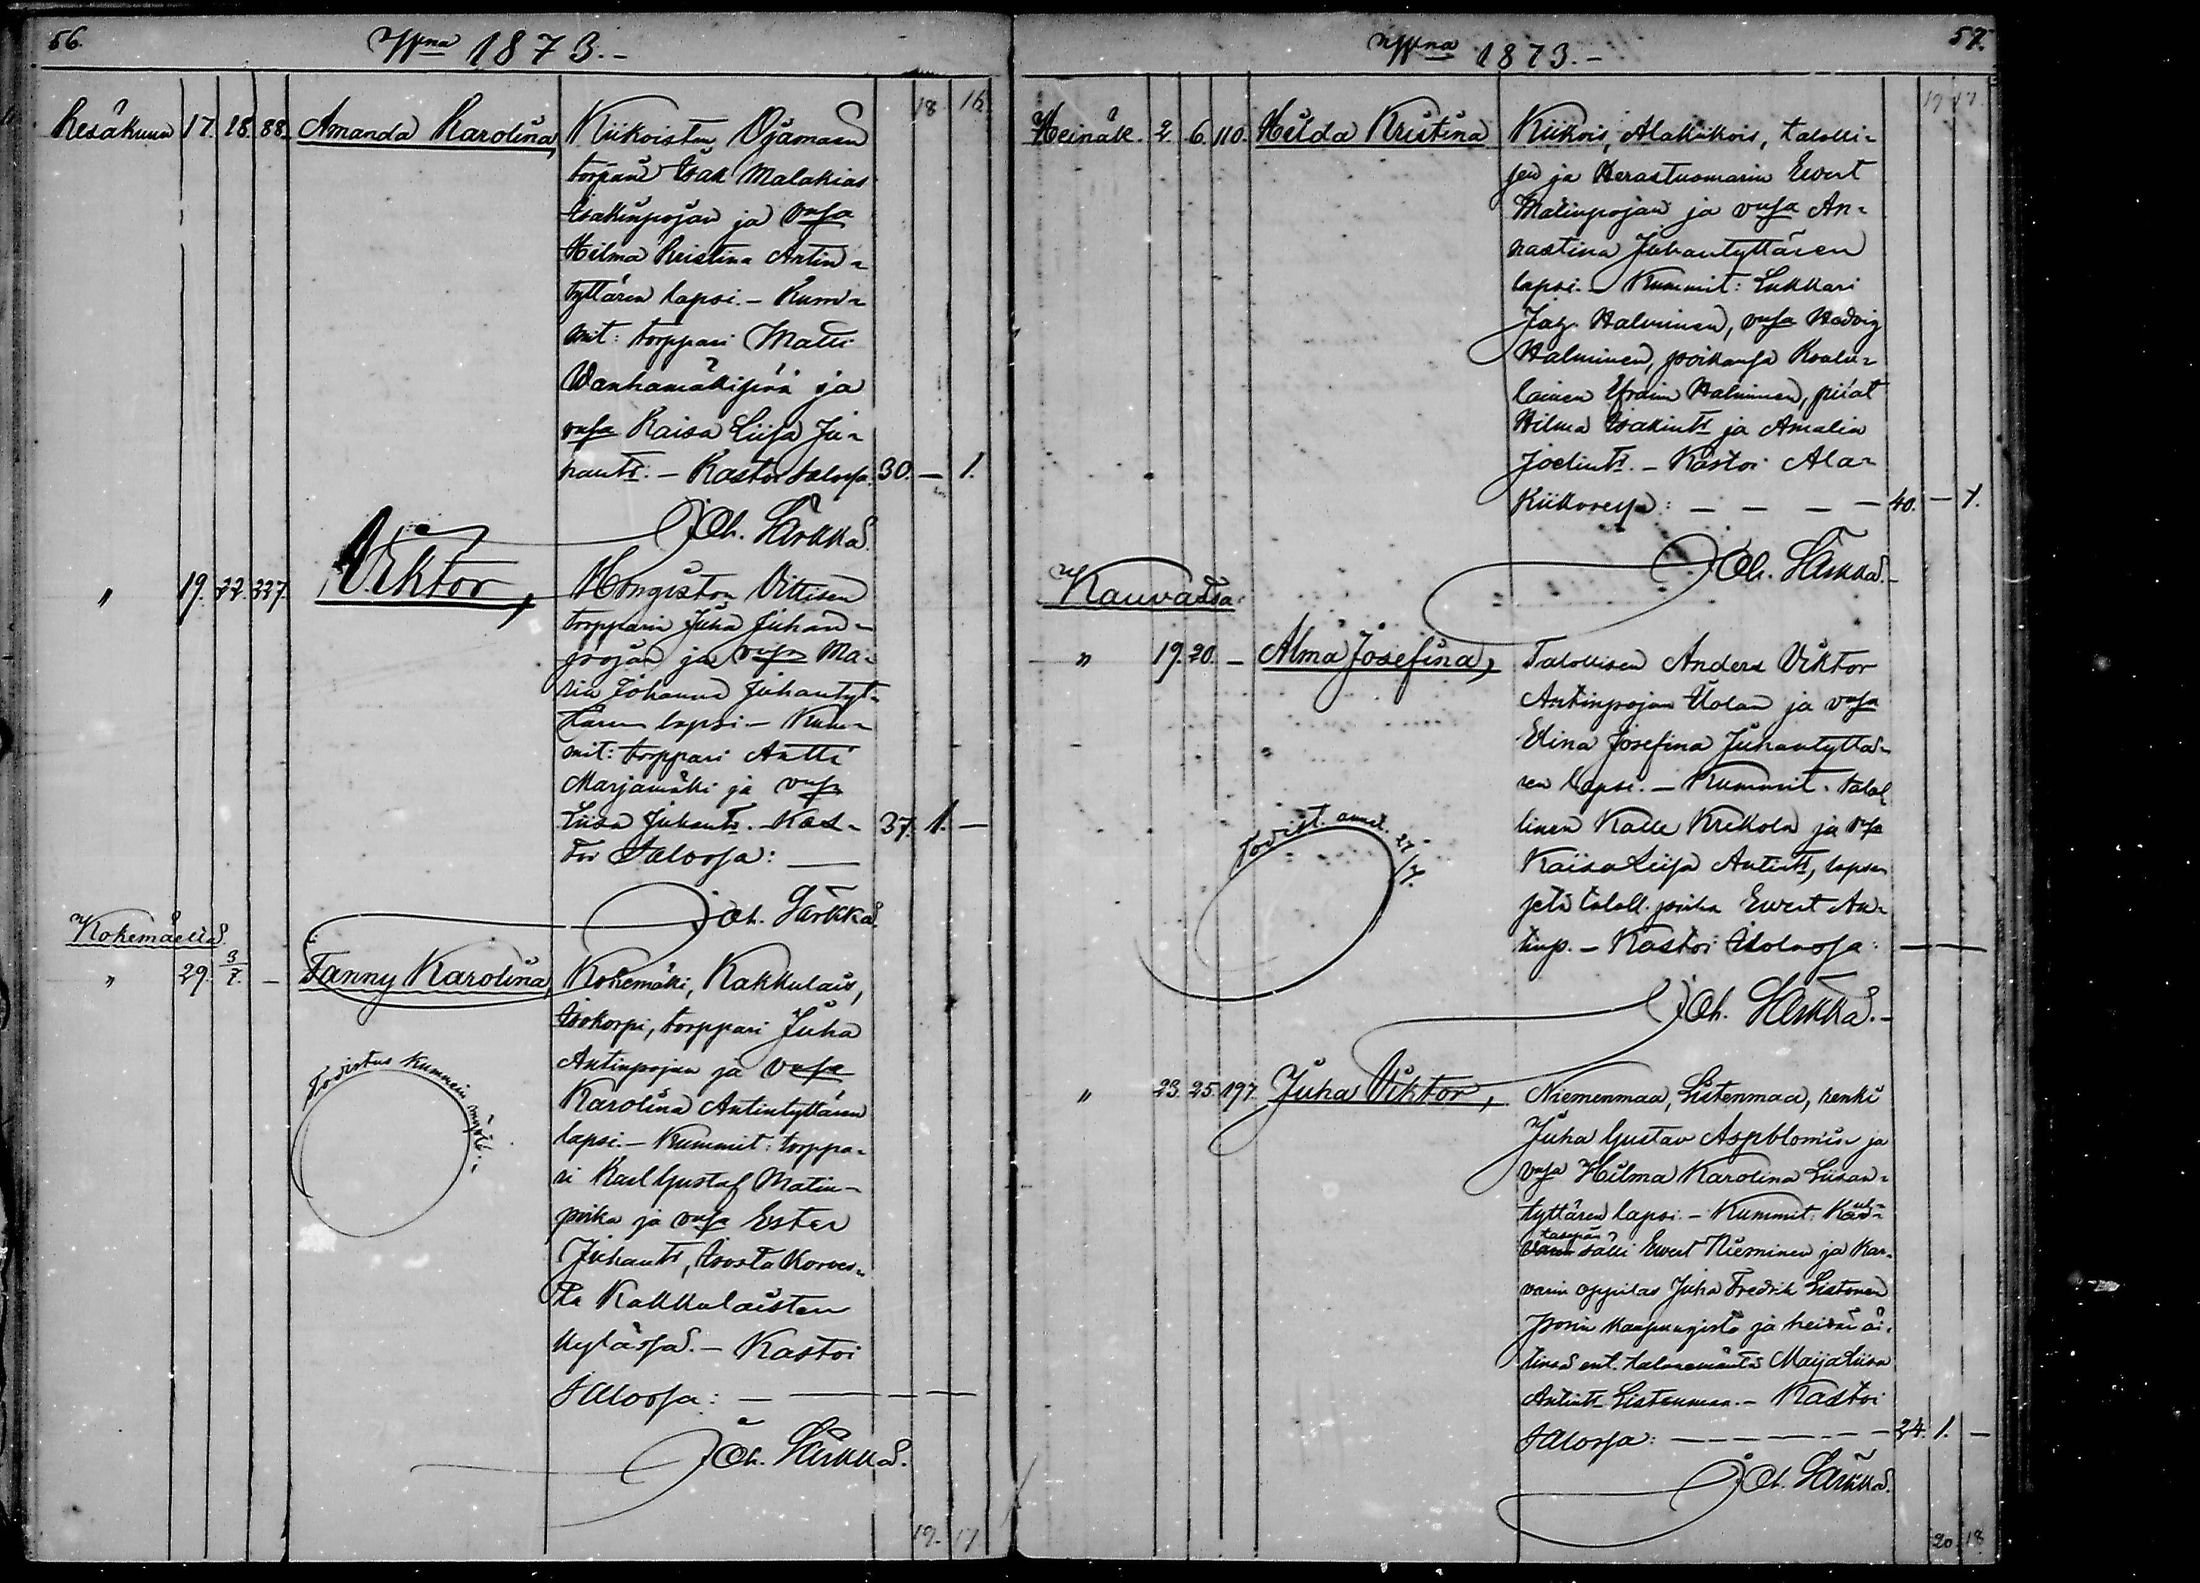 56.
1873.-
18 16.
Kesäkuun 17. 18. 88. Amanda Karolina, Kiikoisten Ojamaan
torpan Isak Malakias
Isakinpojan ja
Hilma Kristina Antin-
tyttären lapsi. - Kum-
mit: torppari Matti
Wanhamäkipää ja
Kaisa Liisa Ju-
hantt. - Kastoi Salossa. 30. - 1.
Joh. Särkkä.
" 19. 22. 227. Viktor, Hongiston Vittisen
torpparin Juha Juhan-
pojan ja Ma-
ria Johanna Juhantyt-
tären lapsi - Kum-
mit: torppari Antti
Marjamäki ja
Liisa Juhantt. - Kas- 37. 1. -
toi Saloosa: -
Joh. Särkkä.
Kokemäellä.
" 29. 3/7. - Fanny Karolina, Kokemäki, Kakkulais,
Isokorpi, torppari Juha
Antinpojan ja
Karolina Antintyttären
lapsi. - Kummit: torppa-
ri Karl Gustaf Matin-
poika ja Ester
Juhantt, Isosta Korves-
ta Kakkulaisten
kylässä. - Kastoi
Saloosa: -
Todistus kummin
Joh. Särkkä.
19. 17
57.
1873.-
19 17.
Heinäk. 2. 6. 110. Hilda Kristina Kiikois, Alakiikois, talolli-
sen ja Herastuomarin Ewert
Matinpojan ja An-
nastina Juhantyttären
lapsi. - Kummit: Lukkari
Halminen, Hedvig
Halminen, poikansa Koulu-
lainen Efraim Halminen, piiat
Hilma Isakintt ja Amalia
Joelintt. - Kastoi Ala-
Kiikoressa: - - - - 40. - 1.
Joh. Särkkä.-
Kauvatsa.
" 19. 20. - Alma Josefina, Talollisen Anders Viktor
Antinpojan Uolan ja
Elina Josefina Juhantyttä-
ren lapsi. - Kummit: talol-
linen Kalle Krekola ja
Kaisa Liisa Antintt, lapsen
setä taloll. poika Ewert An-
tinp. - Kastoi Uolassa: -
Todist. annet. 27/7.
Joh. Särkkä.-
" 23. 25. 197. Juha Viktor, Niemenmaa, Listenmaa, renki
Juha Gustav Aspblomin ja
Hilma Karolina Liisan-
tyttären lapsi. - Kummit:
sälli Ewert Nieminen ja Kar-
varin oppilas Juha Fredrik Listonen
Porin kaupungista ja heidän äi-
tinsä ent. talonemäntä Maija Liisa
Antintt Listenmaa. - Kastoi
Saloosa: - - - - - 24. 1. -
Joh. Särkkä.
20 18